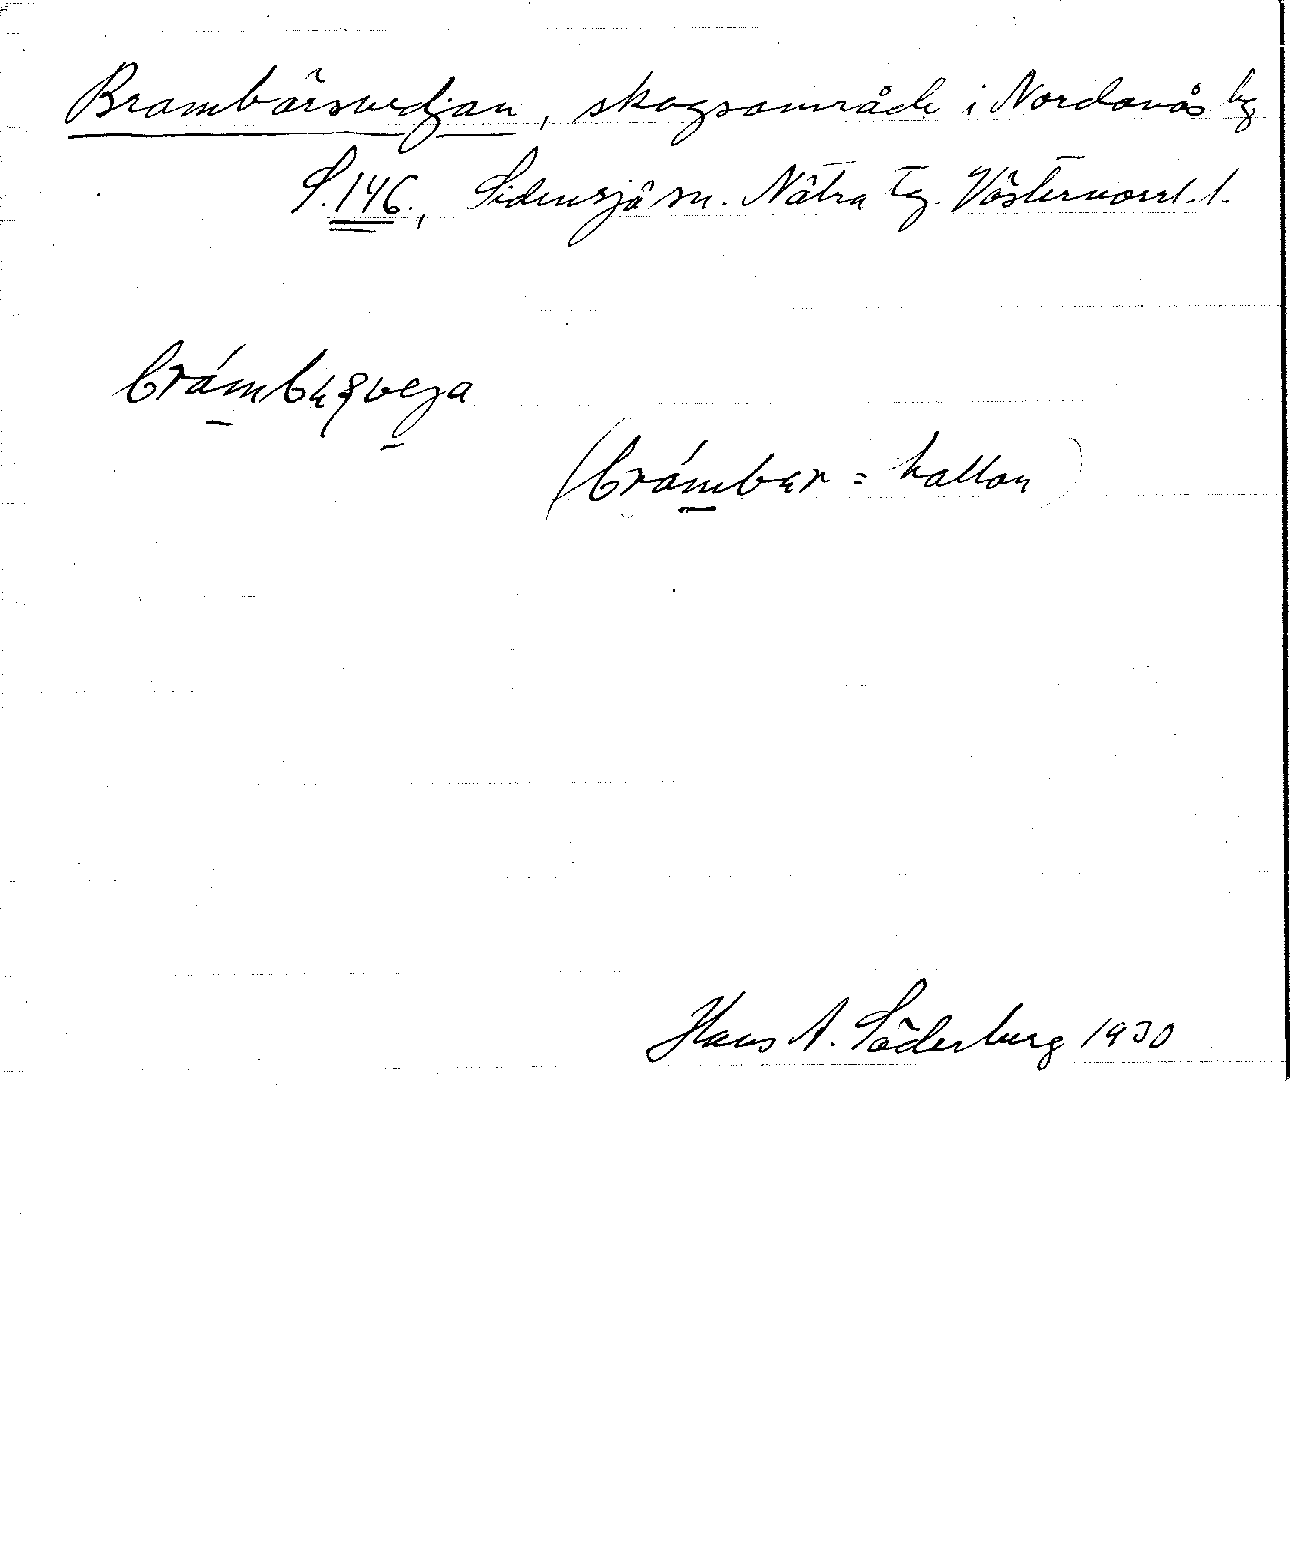 Brambärsvedjan, skogsområde i Nordanås by
S. 146., Sidensjö sn. Nätra tg. Västernorrl. l.
(brámbär = hallon)
Hans A. Söderberg 1930